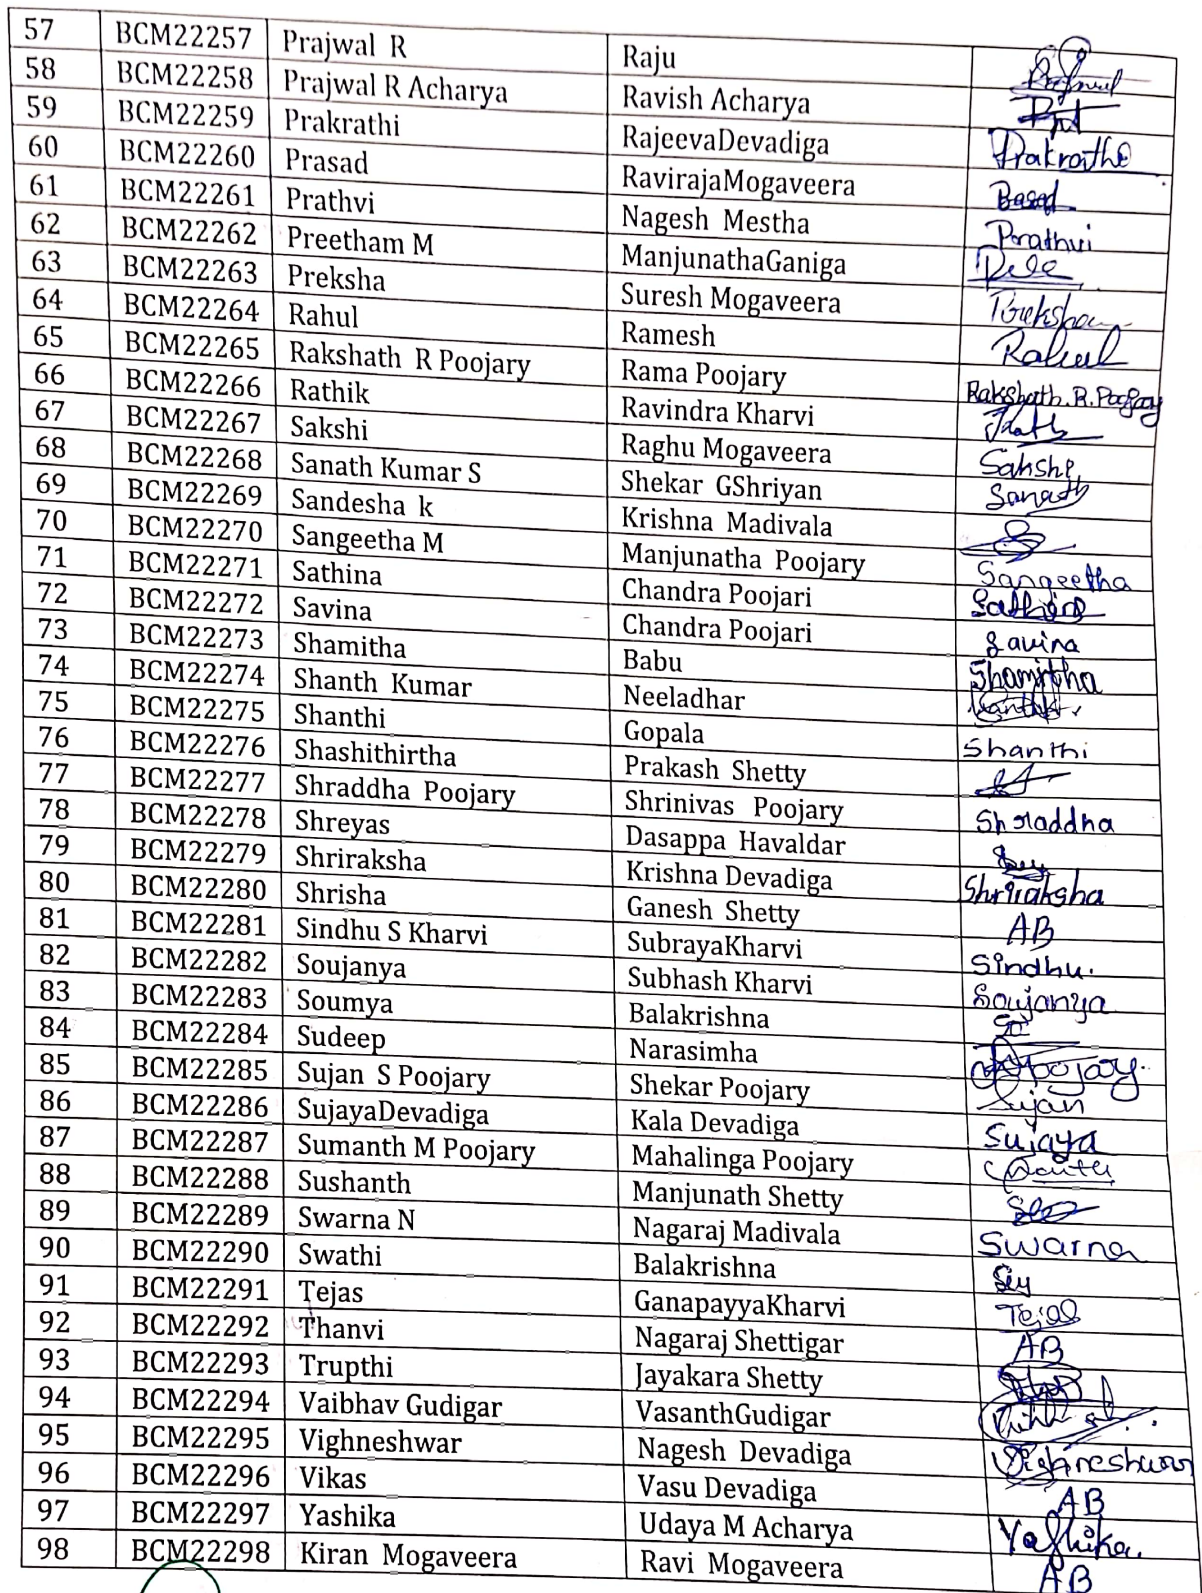 57 BCM22257 Prajwal R Raju
58 BCM22258 Prajwal R Acharya Ravish Acharya
59 BCM22259 Prakrathi RajeevaDevadiga Prakrathi
60 BCM22260 Prasad RavirajaMogaveera
61 BCM22261 Prathvi Nagesh Mestha Prathvi
62 BCM22262 Preetham M ManjunathaGaniga
63 BCM22263 Preksha Suresh Mogaveera
64 BCM22264 Rahul Ramesh Rahul
65 BCM22265 Rakshath R Poojary Rama Poojary Rakshath.R.Poojary
66 BCM22266 Rathik Ravindra Kharvi
67 BCM22267 Sakshi Raghu Mogaveera Sakshi
68 BCM22268 Sanath Kumar S Shekar GShriyan Sanath
69 BCM22269 Sandesha k Krishna Madivala
70 BCM22270 Sangeetha M Manjunatha Poojary Sangeetha
71 BCM22271 Sathina Chandra Poojari Sathina
72 BCM22272 Savina Chandra Poojari Savina
73 BCM22273 Shamitha Babu Shamitha
74 BCM22274 Shanth Kumar Neeladhar
75 BCM22275 Shanthi Gopala Shanthi
76 BCM22276 Shashithirtha Prakash Shetty
77 BCM22277 Shraddha Poojary Shrinivas Poojary Shraddha
78 BCM22278 Shreyas Dasappa Havaldar
79 BCM22279 Shriraksha Krishna Devadiga Shriraksha
80 BCM22280 Shrisha Ganesh Shetty AB
81 BCM22281 Sindhu S Kharvi SubrayaKharvi Sindhu.
82 BCM22282 Soujanya Subhash Kharvi Soujanya
83 BCM22283 Soumya Balakrishna
84 BCM22284 Sudeep Narasimha
85 BCM22285 Sujan S Poojary Shekar Poojary Sujan
86 BCM22286 SujayaDevadiga Kala Devadiga Sujaya
87 BCM22287 Sumanth M Poojary Mahalinga Poojary
88 BCM22288 Sushanth Manjunath Shetty
89 BCM22289 Swarna N Nagaraj Madivala Swarna
90 BCM22290 Swathi Balakrishna
91 BCM22291 Tejas GanapayyaKharvi Tejas
92 BCM22292 Thanvi Nagaraj Shettigar AB
93 BCM22293 Trupthi Jayakara Shetty
94 BCM22294 Vaibhav Gudigar VasanthGudigar
95 BCM22295 Vighneshwar Nagesh Devadiga Vighneshwar
96 BCM22296 Vikas Vasu Devadiga AB
97 BCM22297 Yashika Udaya M Acharya Yashika.
98 BCM22298 Kiran Mogaveera Ravi Mogaveera AB